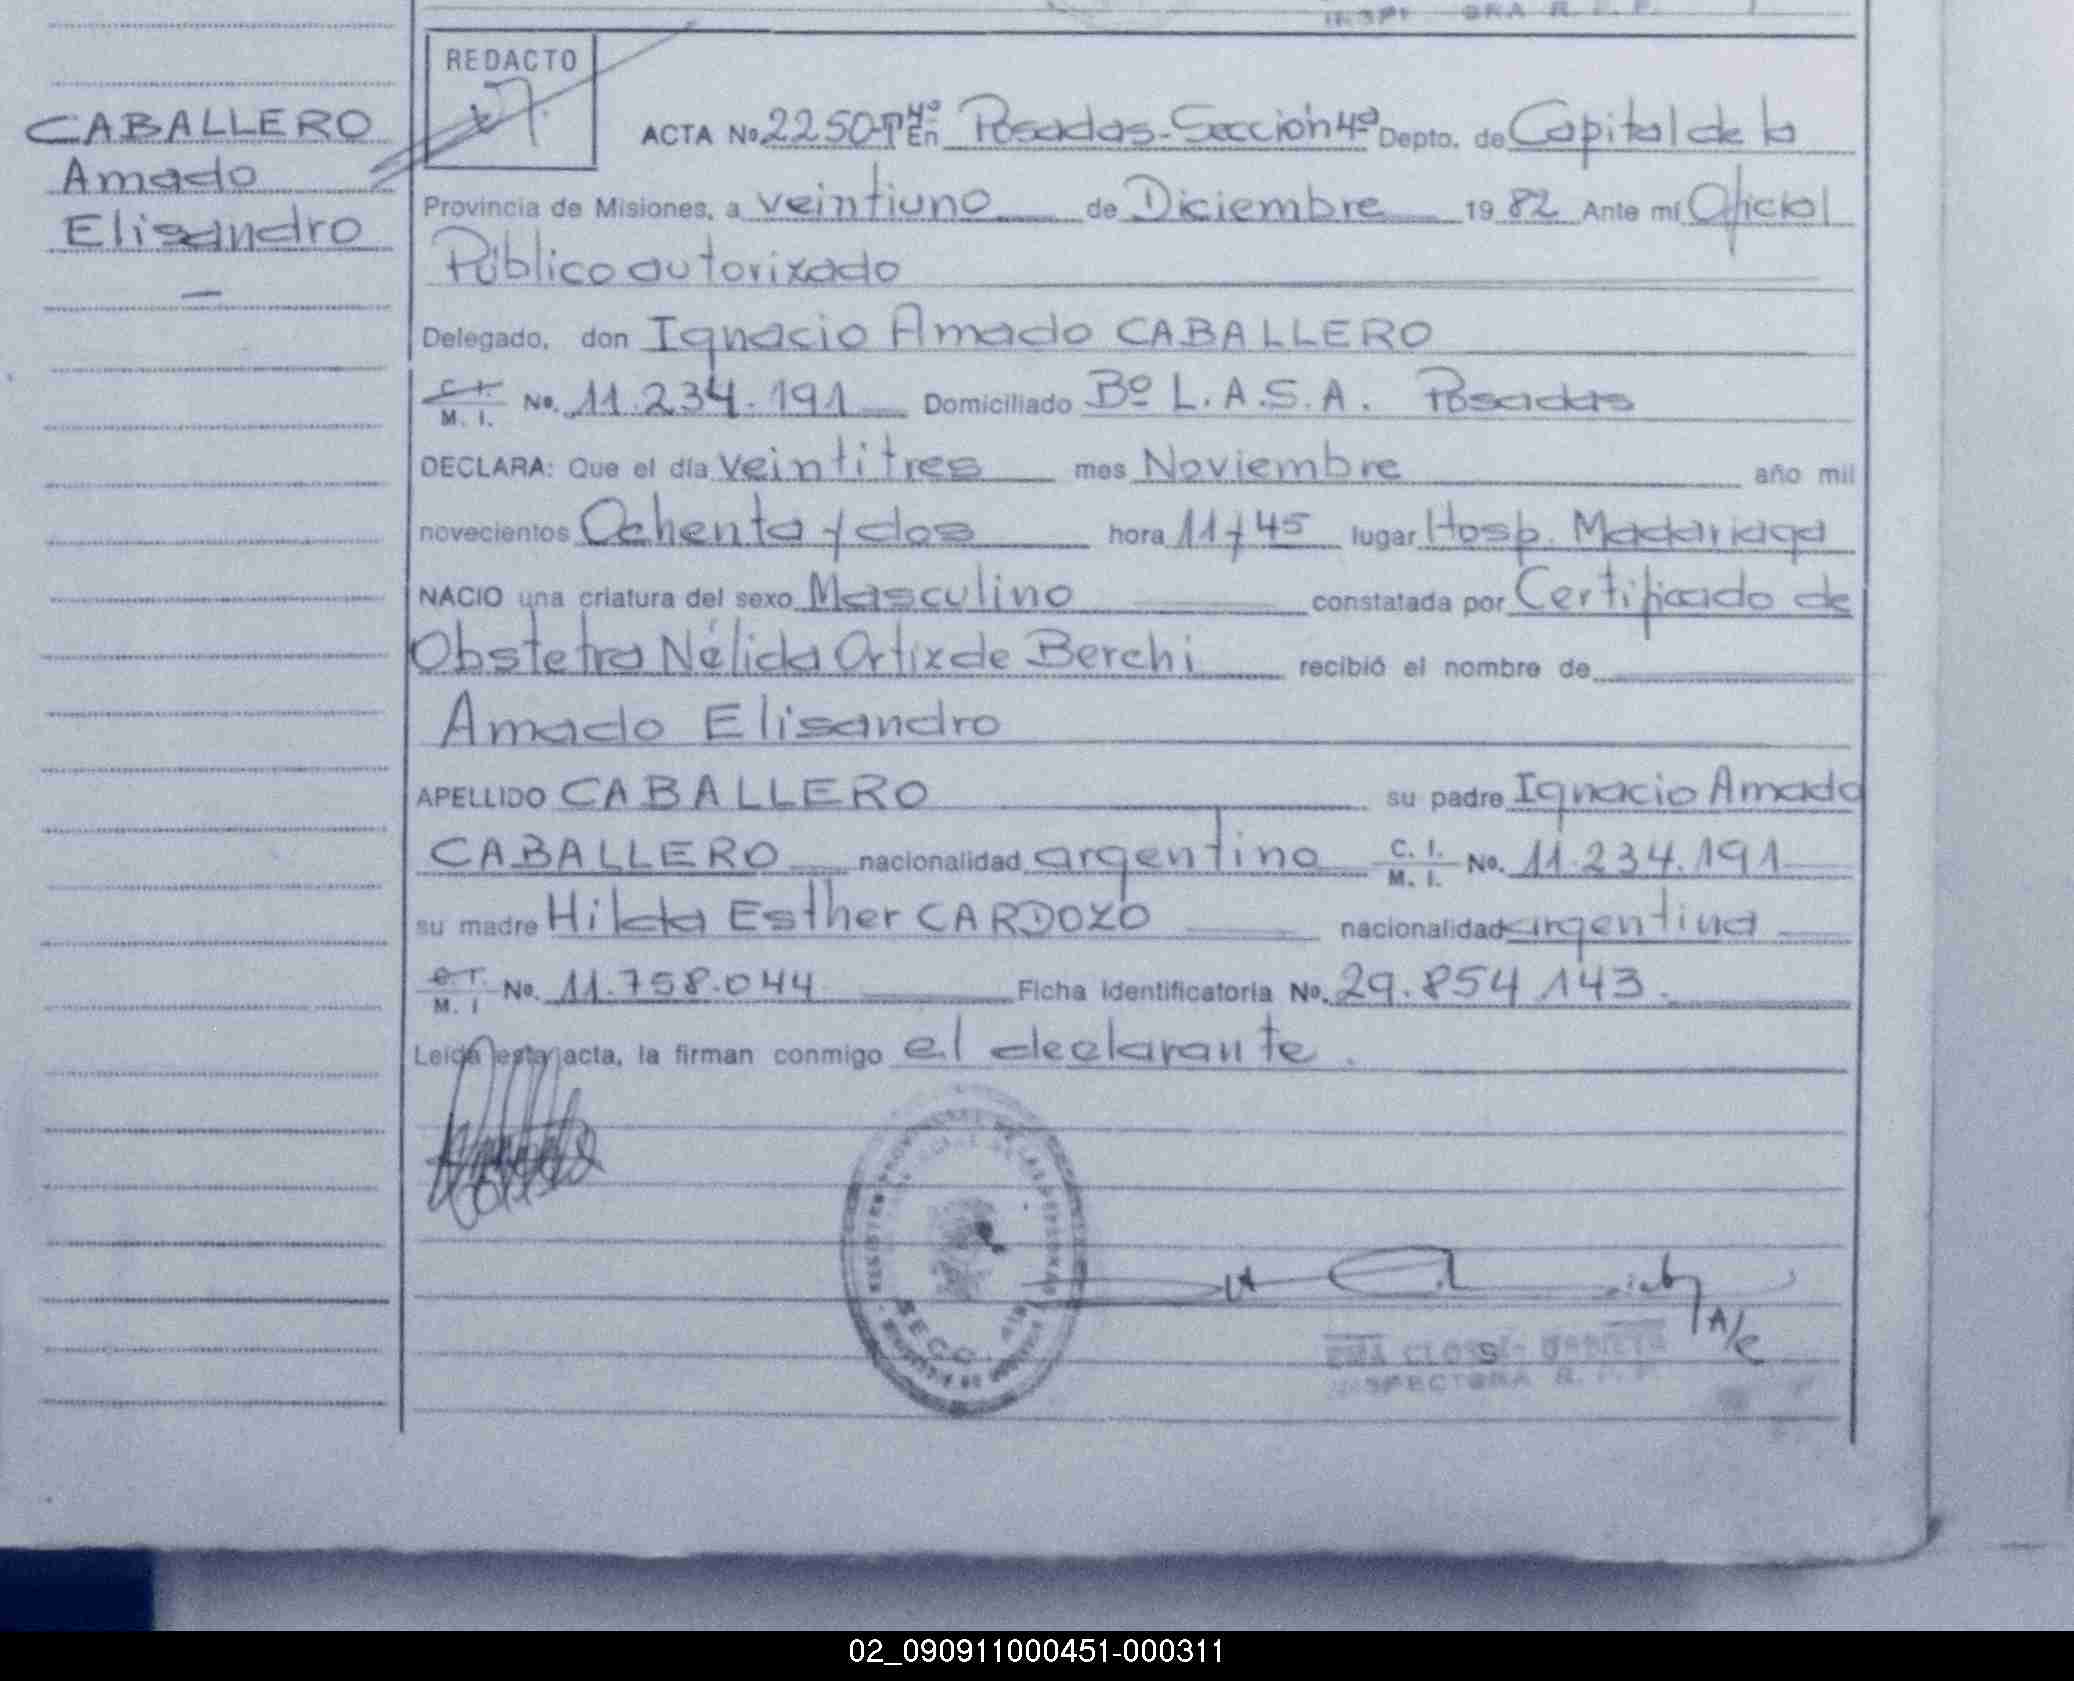 CABALLERO
Amado
Elisandro
—
REDACTO
ACTA No. 2250-Tº4º En Posadas-Sección 4ª Depto. de Capital de la
Provincia de Misiones, a veintiuno de Diciembre 19 82 Ante mí Oficial
Público autorizado
Delegado, don Ignacio Amado CABALLERO
C. I. M. I. No. 11.234.191 Domiciliado Bº L.A.S.A. Posadas
DECLARA: Que el día veintitres mes Noviembre año mil
novecientos Ochenta y dos hora 11 y 45 lugar Hosp. Madariaga
NACIO una criatura del sexo Masculino constatada por Certificado de
Obstetra Nélida Ortiz de Berchi recibió el nombre de
Amado Elisandro
APELLIDO CABALLERO su padre Ignacio Amado
CABALLERO nacionalidad argentino C. I. M. I. No. 11.234.191
su madre Hilda Esther CARDOZO nacionalidad argentina
M. I No. 11.758.044 Ficha identificatoria No. 29.854.143.
Leída esta acta, la firman conmigo el declarante.
SECC.
A/c
INSPECTORA R. P. P.
02_090911000451-000311